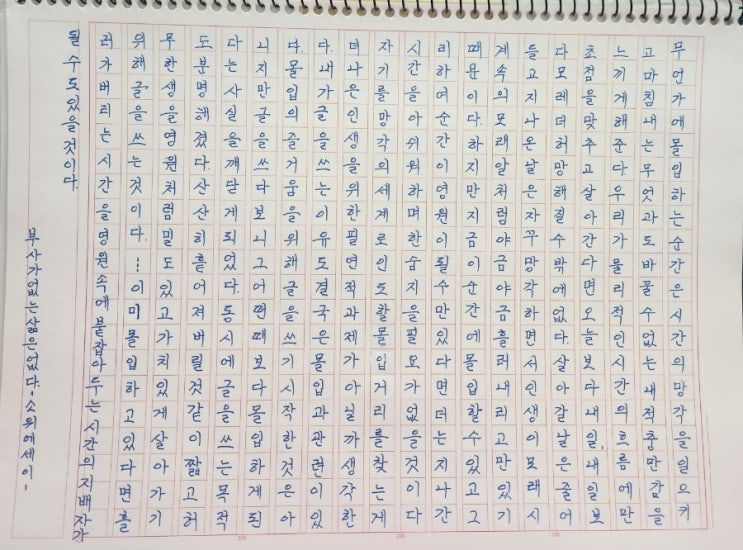 무언가에 몰입하는 순간은 시간의 망각을 일으키
고 마침내는 무엇과도 바꿀 수 없는 내적 충만감을
느끼게 해준다. 우리가 물리적인 시간의 흐름에만
초점을 맞추고 살아간다면 오늘보다 내일, 내일보
다 모레 더 허망해질 수밖에 없다. 살아갈 날은 줄어
들고 지나온 날은 자꾸 망각하면서 인생이 모래시
계 속의 모래알처럼 야금야금 흘러내리고만 있기
때문이다. 하지만 지금 이 순간에 몰입할 수 있고 그
리하여 순간이 영원이 될 수만 있다면 더는 지나간
시간을 아쉬워하며 한숨지을 필요가 없을 것이다
자기를 망각의 세계로 인도할 몰입거리를 찾는 게
더 나은 인생을 위한 필연적 과제가 아닐까 생각한
다. 내가 글을 쓰는 이유도 결국은 몰입과 관련이 있
다. 몰입의 즐거움을 위해 글을 쓰기 시작한 것은 아
니지만 글을 쓰다보니 그 어떤 때보다 몰입하게 된
다는 사실을 깨닫게 되었다. 동시에 글을 쓰는 목적
도 분명해졌다. 산산히 흩어져버릴 것 같이 짧고 허
무한 생을 영원처럼 밀도있고 가치있게 살아가기
위해 글을 쓰는 것이다. … 이미 몰입하고 있다면 흘
러가버리는 시간을 영원 속에 붙잡아 두는 시간의 지배자가
될 수도 있을 것이다.
부사가 없는 삶은 없다. - 소위 에세이 -